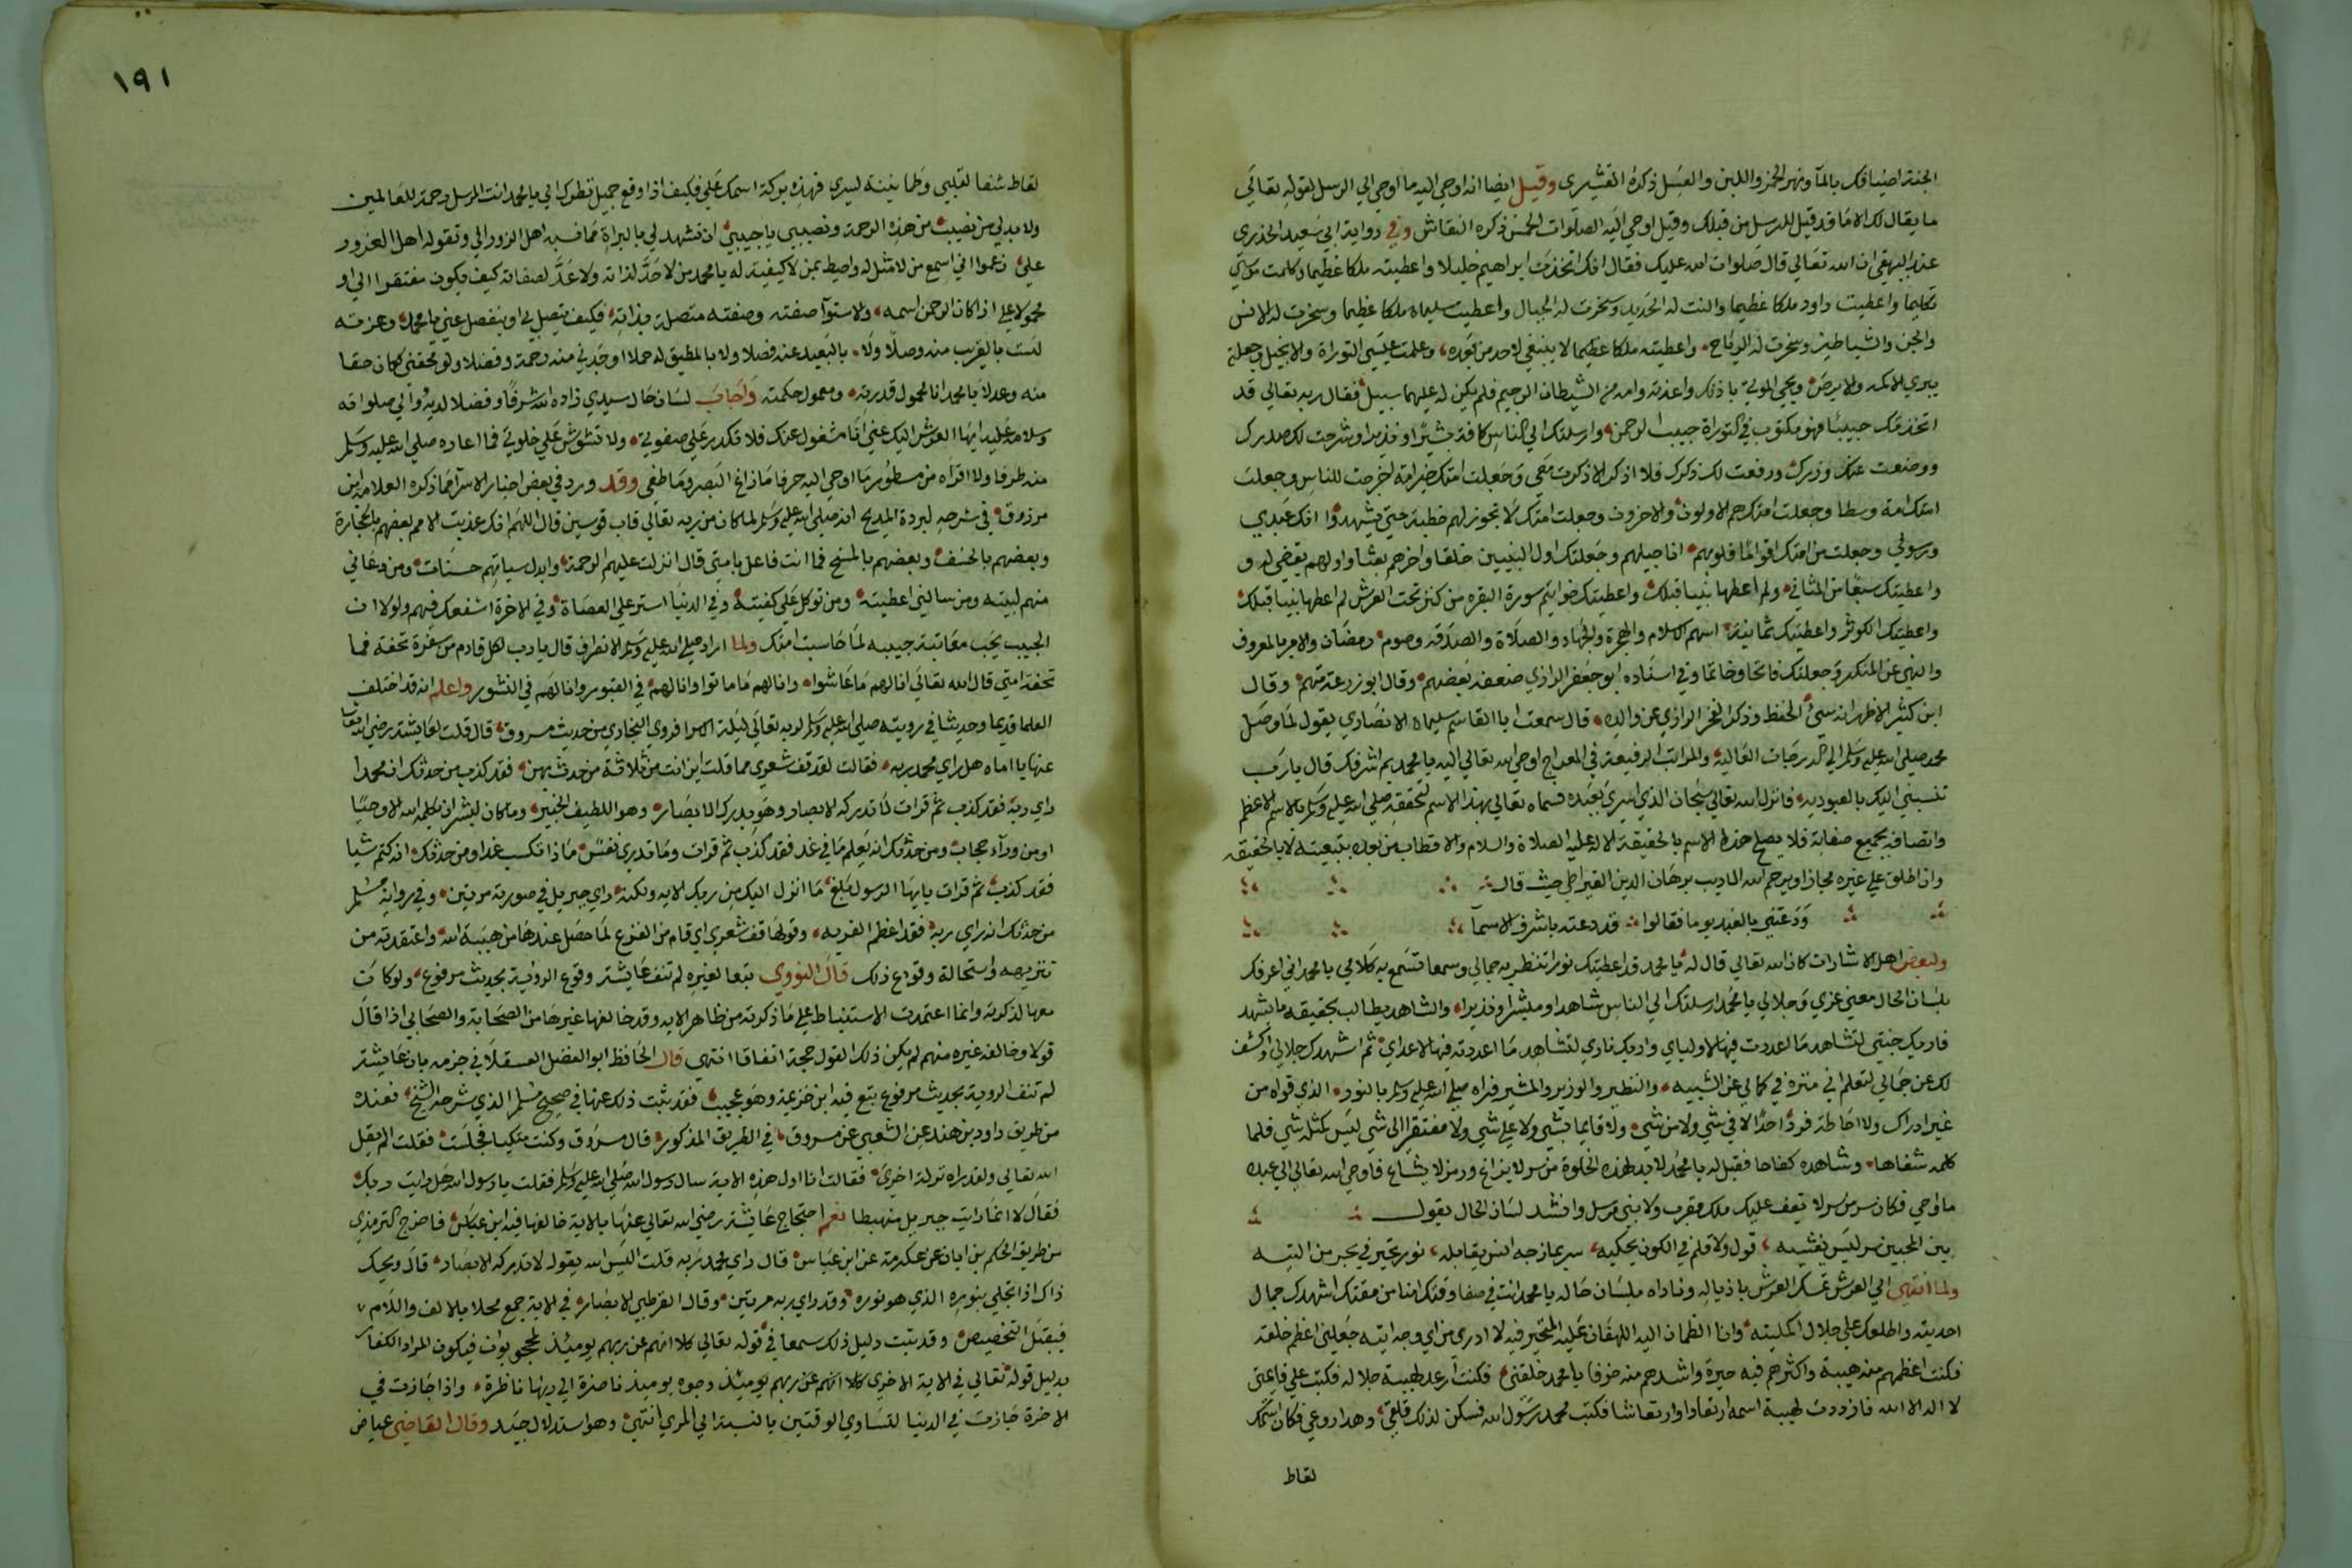 الجنة لضيافك بالمآ ونهر الخمر واللبن والعسل ذكره القشيرى وقيل ايضا انه اوحي اليه ما اوحي الي الرسل لقوله تعالي
ما يقال لك الا ما قد قيل للرسل من قبلك وقيل اوحي اليه الصلوات الخمس ذكره النقاش وفي رواية ابي سعيد الخدري
عند البيهقي ان الله تعالي قال صلوات الله عليك فقال انك اتخذت ابراهيم خليلا واعطيته ملكا عظيما وكلمت موسي
تكليما واعطيت داود ملكا عظيما والنت له الحديد وسخرت له الجبال واعطيت سليمان ملكا عظيما وسخرت له الانس
والجن والشياطين وسخرت له الرياح واعطيته ملكا عظيما لا ينبغي لاحد من بعده وعلمت عيسي التوراة والانجيل وجعلته
يبري الاكمه والابرص ويحي الموتي باذنك واعذته وامه من الشيطان الرجيم فلم يكن له عليهما سبيل فقال ربه تعالي قد
اتخذتك حبيبا فهو مكتوب في التوراة حبيب الرحمن وارسلتك الي الناس كافة بشيرا ونذيرا وشرحت لك صدرك
ووضعت عنك وزرك ورفعت لك ذكرك فلا اذكر الا ذكرت معي وجعلت امتك خير امة اخرجت للناس وجعلت
امتك امة وسطا وجعلت امتك هم الاولون والاخرون وجعلت امتك لا تجوز لهم خطبة حتي يشهدوا انك عبدي
ورسولي وجعلت من امتك اقواما قلوبهم اناجيلهم وجعلتك اول النبيين خلقا واخرهم بعثا واولهم يقضي له و
واعطيتك سبعا من المثاني ولم اعطها نبيا قبلك واعطيتك خواتيم سورة البقره من كنز تحت العرش لم اعطها نبيا قبلك
واعطيتك الكوثر واعطيتك ثمانية اسهم الاسلام والهجرة والجهاد والصلاة والصدقه وصوم رمضان والامر بالمعروف
والنهي عن المنكر وجعلتك فاتحا وخاتما وفي اسناده ابو جعفر الرازي ضعفه بعضهم وقال ابو زرعة متهم وقال
ابن كثير الاظهر انه سيئ الحفظ وذكر الفخر الرازي عن والده قال سمعت ابا القاسم سليمان الانصاري يقول لما وصل
محمد صلي الله عليه وسلم الي الدرجات العالية والمراتب الرفيعة في المعراج اوحي الله تعالي اليه يا محمد بم اشرفك قال يا رب
تنسبني اليك بالعبودية فانزل الله تعالي سبحان الذي اسري بعبده فسماه تعالي بهذا الاسم لتحققه صلي الله عليه وسلم بالاسم الاعظم
واتصافه بجميع صفاته فلا يصلح هذا الاسم بالحقيقة الا له عليه الصلاة والسلام والاقطاب من بعده بتبعيته لا بالحقيقه
وان اطلق علي غيره مجازا ويرحم الله الاديب برهان الدين القيراطي حيث قال
ودعتني بالعبد يوما فقالوا قد دعته باشرف الاسمآ
ولبعض اهل الاشارات كان الله تعالي قال له يا محمد قد اعطيتك نورا تنظر به جمالي وسمعا تسمع به كلامي يا محمد اني اعرفك
بلسان الحال معني عزي وجلالي يا محمد ارسلتك الي الناس شاهدا ومبشرا ونذيرا والشاهد يطالب بحقيقه ما يشهد
فاريك جنتي لتشاهد ما اعددت فيها لاوليائي واريك ناري لتشاهد ما اعددته فيها لاعدائي ثم اشهدك جلالي واكشف
لك عن جمالي لتعلم اني منزه في كمالي عن الشبيه والنظير والوزير والمشير فراه صلي الله عليه وسلم بالنور الذي قواه من
غير ادراك ولا احاطة فردا احدا لا في شي ولا من شي ولا قايما بشي ولا علي شي ولا مفتقرا الى شي ليس كمثله شي فلما
كلمه شفاها وشاهده كفاحا فقيل له يا محمد لا بد لهذه الخلوة من سر لا يذاع ورمز لا يشاع فاوحي الله تعالي الي عبده
ما اوحي فكان سر من سر لا يقف عليه ملك مقرب ولا نبي مرسل وانشد لسان الحال يقول
بين المحبين سر ليس يفشيه قول ولا قلم في الكون يحكيه سر يمازجه انس يقابله نور تحير في بحر من التيه
ولما انتهي الي العرش تمسك العرش باذياله وناداه بلسان حاله يا محمد انت في صفا وقتك امنا من مقتك اشهدك جمال
احديته واطلعك علي جلال وانا الظمان اليه اللهفان عليه المتحير فيه لا ادري من اي وجه اتيه جعلني اعظم خلقه
فكنت اعظمهم منه هيبة واكثرهم فيه حيرة واشدهم منه خوفا يا محمد خلقني فكنت ارعد لهيبة جلاله فكتب علي قايمتي
لا اله الا الله فازددت لهيبة اسمه ارتعادا وارتعاشا فكتب محمد رسول الله فسكن لذلك قلقي وهدا روعي فكان اسمك
لقاط
١٩١
لقاط شفا لقلبي وطمانينة لسري فهذه بركة اسمك علي فكيف اذا وقع جميل نظرك الي يا محمد انت المرسل رحمة للعالمين
ولا بد لي من نصيب من هذه الرحمة ونصيبي يا حبيبي ان تشهد لي بالبراة مما نسبه اهل الزور الي وتقوله اهل الغرور
علي زعموا اني اسع من لا مثل له واحيط بمن لا كيفية له يا محمد من لا حد لذاته ولا عد لصفاته كيف يكون مفتقرا الي او
محمولا علي اذا كان الرحمن اسمه والاستوآ صفته وصفته متصلة بذاته فكيف يتصل بي او ينفصل عني يا محمد وعزته
لست بالقريب منه وصلا ولا بالبعيد عنه فصلا ولا بالمطيق له حملا اوجدني منه رحمة وفضلا ولو محقني لكان حقا
منه وعدلا يا محمد انا محمول قدرته ومعمول حكمته واجاب لسان حال سيدي زاده الله شرفا وفضلا لديه ووالي صلواته
وسلامه عليه ايها العرش اليك عني انا مشغول عنك فلا تكدر علي صفوتي ولا تشوش علي خلوتي فما اعاره صلي الله عليه وسلم
منه طرفا ولا اقراه من مسطور ما اوحي اليه حرفا ما زاغ البصر وما طغي وقد ورد في بعض اخبار الاسرآ مما ذكره العلامة ابن
مرزوق في شرحه لبردة المديح انه صلي الله عليه وسلم لما كان من ربه تعالي قاب قوسين قال اللهم انك عذبت الامم بعضهم بالحجارة
وبعضهم بالخسف وبعضهم بالمسخ فما انت فاعل بامتي قال انزلت عليهم الرحمة وابدل سياتهم حسنات ومن دعاني
منهم لبيته ومن سالني اعطيته ومن توكل علي كفيته وفي الدنيا استر علي العصاة وفي الاخرة اشفعك فيهم ولولا ان
الحبيب يحب معاتبة حبيبه لما حاسبت امتك ولما اراد صلي الله عليه وسلم الانصراف قال يا رب لكل قادم من سفرة تحفة فما
تحفة امتي قال الله تعالي انا لهم ما عاشوا وانا لهم ما ماتوا وانا لهم في القبور وانا لهم في النشور واعلم انه قد اختلف
العلما قديما وحديثا في رويته صلي الله عليه وسلم لربه تعالي ليلة الاسرا فروي البخاري من حديث مسروق قال قلت لعايشة رضي الله تعالي
عنها يا اماه هل راي محمد ربه فقالت لقد قف شعري مما قلت اين انت من ثلاثة من حدثكهن فقد كذب من حدثك ان محمدا
راي ربه فقد كذب ثم قرات لا تدركه الابصار وهو يدرك الابصار وهو اللطيف الخبير وما كان لبشر ان يكلمه الله الا وحيا
او من ورآء حجاب ومن حدثك انه يعلم ما في غد فقد كذب ثم قرات وما تدري نفس ماذا تكسب غدا ومن حدثك انه كتم شيا
فقد كذب ثم قرات يايها الرسول بلغ ما انزل اليك من ربك الايه ولكنه راي جبريل في صورته مرتين وفي رواية مسلم
من حدثك انه راي ربه فقد اعظم الفريه وقولها قف شعري اي قام من الفزع لما حصل عندها من هيبة الله واعتقدته من
تنزيهه واستحالة وقوع ذلك قال النووي تبعا لغيره لم تنف عايشة وقوع الروية بحديث مرفوع ولو كان
معها لذكرته وانما اعتمدت الاستنباط علي ما ذكرته من ظاهر الايه وقد خالفها غيرها من الصحابة والصحابي اذا قال
قولا وخالفه غيره منهم لم يكن ذلك القول حجة اتفاقا انتهي قال الحافظ ابو الفضل العسقلاني جزمه بان عايشة
لم تنف الروية بحديث مرفوع تبع فيه ابن خزيمة وهو عجيب فقد ثبت ذلك عنها في صحيح مسلم الذي شرحه الشيخ فعنده
من طريق داود بن هند عن الشعبي عن مسروق في الطريق المذكور قال مسروق وكنت متكيا فجلست فقلت الم يقل
الله تعالي ولقد راه نزلة اخري فقالت انا اول هذه الامة سال رسول الله صلي الله عليه وسلم فقلت يا رسول الله هل رايت ربك
فقال لا انما رايت جبريل منهبطا نعم احتجاج عايشة رضي الله تعالي عنها بالاية خالفها فيه ابن عباس فاخرج الترمذي
من طريق الحكم بن ابان عن عكرمة عن ابن عباس قال راي محمد ربه قلت اليس الله يقول لا تدركه الابصار قال ويحك
ذاك اذا تجلي بنوره الذي هو نوره وقد راي ربه مرتين وقال القرطبي الابصار في الاية جمع محلا بالالف واللام
فيقبل التخصيص وقد ثبت دليل ذلك سمعا في قوله تعالي كلا انهم عن ربهم يوميذ لمحجوبون فيكون المراد الكفار
بدليل قوله تعالي في الاية الاخري كلا انهم عن ربهم يوميذ وجوه يوميذ ناضرة الي ربها ناظرة واذا جازت في
الاخرة جازت في الدنيا لتساوي الوقتين بالنسبة الي المري انتهي وهو استدلال جيد وقال القاضي عياض